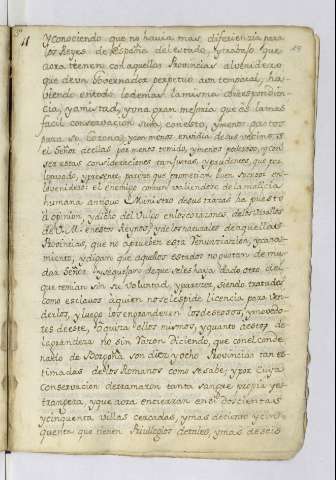 Y conociendo que no havia mas diferienzia para
los Reyes de España del estado, y trabajo que
aora tienen con aquellas Provincias
que de un Governador perpetuo aun temporal, ha
viendo en todo lo demas la misma correspondien
cia, y amistad, y una gran mejoria que es la mas
facil conservacion suya, con esto, y menos gastos
para su Corona, y con menos envidia de sus vecinos
el Señor de ellas por menos temido, y menos poderoso, y con
ser estas consideraciones tan justas, y prudentes, que por lo
pasado, y presente, parece que prometian buen suceso en
lo venidero: el enemigo comun valiendose de la malicia
humana antiguo Ministro de sus trazas ha puesto
opinion, y dicho del Vulgo en los corazones de los Vasallos
de V. M. en estos Reynos, y de los naturales de aquellas
Provincias, que no aprueben esta Renunziazion, y casa
miento, y digan que aquellos estados no gustan de mu
dar Señor, y se quejan de que se les haya dado otro, del
que tenian sin su Voluntad, y parecer, siendo tratados
como esclavos a quien no se les pide licencia para ven
derlos, y luego los engrandecen los deseosos, y movedo
res de este, o quiza ellos mismos, y quanto a esto de
la grandeza no sin razon diciendo, que con el Conde
nado de Borgoña son diez y ocho Provincias tan es
timadas de los Romanos como se sabe, y por cuya
conservacion derramaron tanta sangre propia y es
trangera, y que aora encierran en si doscientas
y cinquenta villas cercadas, y mas de ciento y cin
quenta que tienen Privilegios de tales, y mas de seis